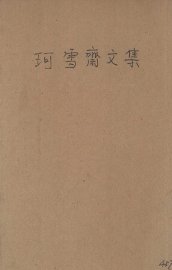 珂雪齋文集